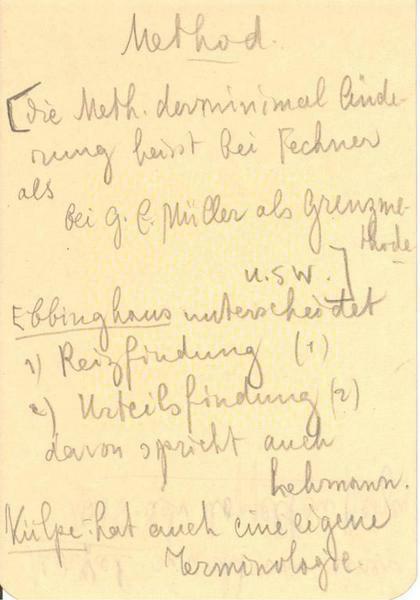 Method.
[die Meth. der minimal Ände-
rung heisst bei Fechner
als
bei G. E. Müller als Grenzme-
thode
u.s.w.]
Ebbinghaus unterscheidet
1) Reizfindung (1)
2) Urteilsfindung (2)
davon spricht auch
Lehmann.
Külpe hat auch eine eigene
Terminologie.